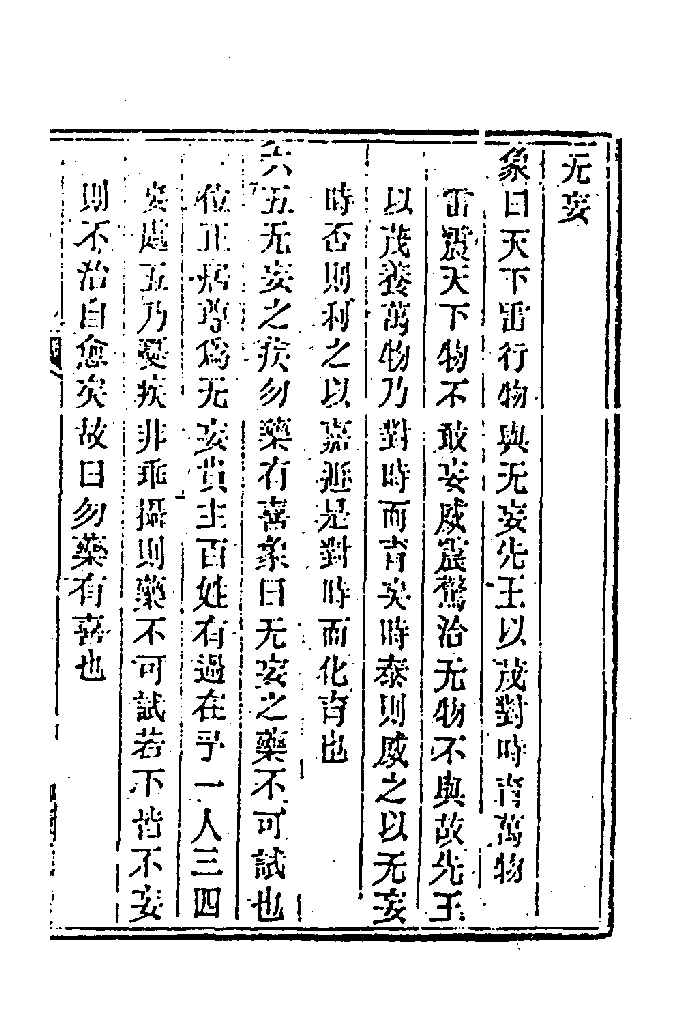 无妄
象曰天下雷行物與无妄先王以茂對時育萬物
雷震天下物不敢妄威震驚治无物不與故先王
以茂養萬物乃對時而育矣時泰則威之以无妄
時否則利之以嘉遯是對時而化育也
六五无妄之疾勿藥有喜象曰无妄之藥不可試也
位正居尊爲无妄貴主百姓有過在乎一人三四
妄處五乃憂疾非乖攝則藥不可試若下皆不妄
則不治自愈矣故曰勿藥有喜也